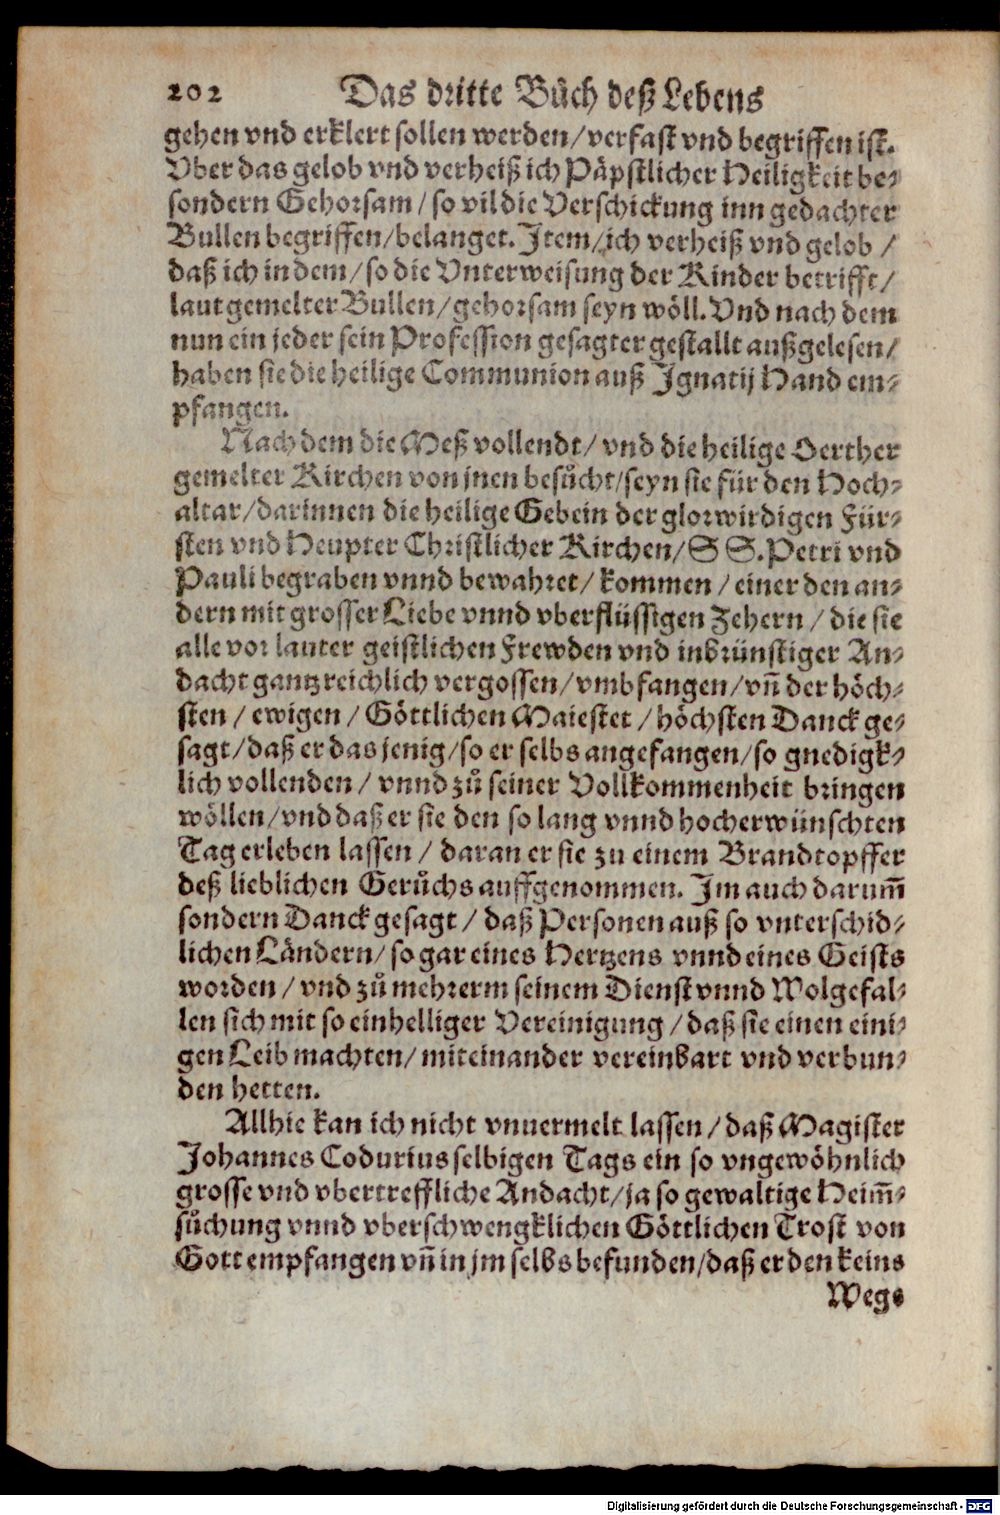 202 Das dritte Bůch deß Lebens
gehen vnd erklert sollen werden/verfast vnd begriffen ist.
Vber das gelob vnd verheiß ich Päpstlicher Heiligkeit be⸗
sondern Gehorsam/so vil die Verschickung inn gedachter
Bullen begriffen/belanget. Item/ich verheiß vnd gelob/
daß ich in dem/so die Vnterweisung der Kinder betrifft/
laut gemelter Bullen/gehorsam seyn wöll. Vnd nach dem
nun ein jeder sein Profession gesagter gestallt außgelesen/
haben sie die heilige Communion auß Ignatij Hand em⸗
pfangen.
Nach dem die Meß vollendt/vnd die heilige Oerther
gemelter Kirchen von jnen besůcht/seyn sie für den Hoch⸗
altar/darinnen die heilige Gebein der glorwirdigen Für⸗
sten vnd Heupter Christlicher Kirchen/S S. Petri vnd
Pauli begraben vnnd bewahret/kommen/einer den an⸗
dern mit grosser Liebe vnnd vberflüssigen Zehern/die sie
alle vor lauter geistlichen Frewden vnd inbrünstiger An⸗
dacht gantz reichlich vergossen/vmbfangen/vñ der höch⸗
sten/ewigen/Göttlichen Maiestet/höchsten Danck ge⸗
sagt/daß er das jenig/so er selbs angefangen/so gnedigk⸗
lich vollenden/vnnd zů seiner Vollkommenheit bringen
wöllen/vnd daß er sie den so lang vnnd hocherwünschten
Tag erleben lassen/daran er sie zu einem Brandtopffer
deß lieblichen Gerůchs auffgenommen. Im auch darum̃
sondern Danck gesagt/daß Personen auß so vnterschid⸗
lichen Ländern/so gar eines Hertzens vnnd eines Geists
worden/vnd zů mehrerm seinem Dienst vnnd Wolgefal⸗
len sich mit so einhelliger Vereinigung/daß sie einen eini⸗
gen Leib machten/miteinander vereinbart vnd verbun⸗
den hetten.
Allhie kan ich nicht vnuermelt lassen/daß Magister
Johannes Codurius selbigen Tags ein so vngewöhnlich
grosse vnd vbertreffliche Andacht/ja so gewaltige Heim̃⸗
sůchung vnnd vberschwengklichen Göttlichen Trost von
Gott empfangen vñ in jm selbs befunden/daß er den keins
Wegs
Digitalisierung gefördert durch die Deutsche Forschungsgemeinschaft - DFG